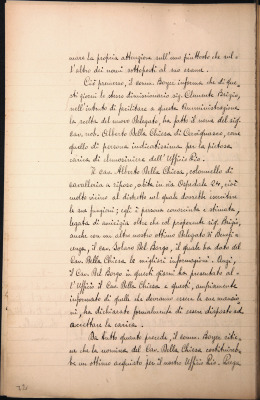 mare la propria attenzione sull'uno piuttosto che sul-
l'altro dei nomi sottoposti al suo esame.
Ciò premesso, il comm. Borgo informa che di que-
sti giorni lo stesso dimissionario sig. Clemente Brigio,
nell'intento di facilitare a questa Amministrazione
la scelta del nuovo Delegato, ha fatto il nome del sig.
cav. nob. Alberto Della Chiesa di Cervignasco, come
quello di persona indicatissima per la pietosa
carica di elemosiniere dell'Ufficio Pio.
Il cav. Alberto Della Chiesa, colonnello di
cavalleria a riposo, abita in via Ospedale 24, cioè
molto vicino al distretto nel quale dovrebbe esercitare
le sue funzioni; egli è persona conosciuta e stimata,
legata di amicizia oltre che col proponente sig. Brigio,
anche con un altro nostro ottimo Delegato di Benefi-
cenza, il cav. Solaro Del Borgo, il quale ha dato del
Cav. Della Chiesa le migliori informazioni. Anzi,
il Cav. Del Borgo in questi giorni ha presentato al-
l'Ufficio il Cav. Della Chiesa e questi, ampiamente
informato di quelle che dovranno essere le sue mansio-
ni, ha dichiarato formalmente di essere disposto ad
accettare la carica.
Da tutto quanto precede, il comm. Borgo ritie-
ne che la nomina del Cav. Della Chiesa costituireb-
be un ottimo acquisto per il nostro Ufficio Pio.